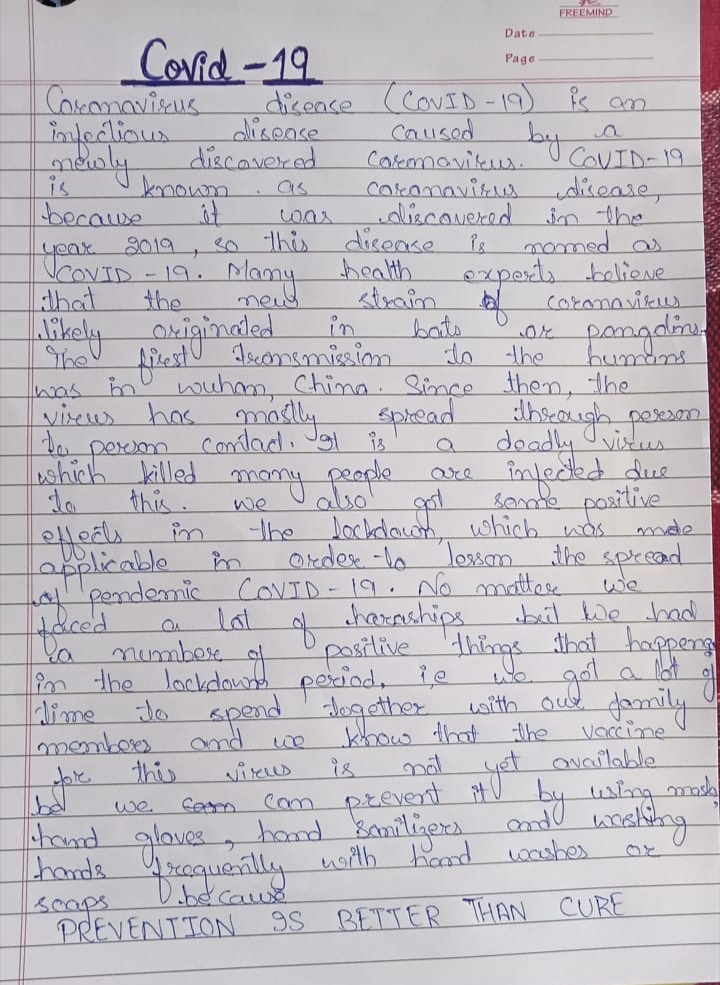 FREEMIND
Date
Page
Covid-19
Coronavirus disease (COVID-19) is an
infectious disease caused by a
newly discovered coronavirus. COVID-19
is known as coronavirus disease,
because it was discovered in the
year 2019, so this disease is named as
COVID-19. Many health experts believe
that the new strain of coronavirus
likely originated in bats or pangolins.
The first transmission to the humans
was in wuhan, China. Since then, the
virus has mostly spread through person
to person contact. It is a deadly virus
which killed many people are infected due
to this. we also got some positive
effects in the lockdown, which was made
applicable in order to lesson the spread
of pendemic COVID-19. No matter we
faced a lot of harnships but we had
a number of positive things that happeng
in the lockdown period. i.e we got a lot of
time to spend together with our family
members and we know that the vaccine
for this virus is not yet available
but we can prevent it by using mask,
hand gloves, hand sanitizers and washing
hands frequently with hand washes or
soaps because
PREVENTION IS BETTER THAN CURE